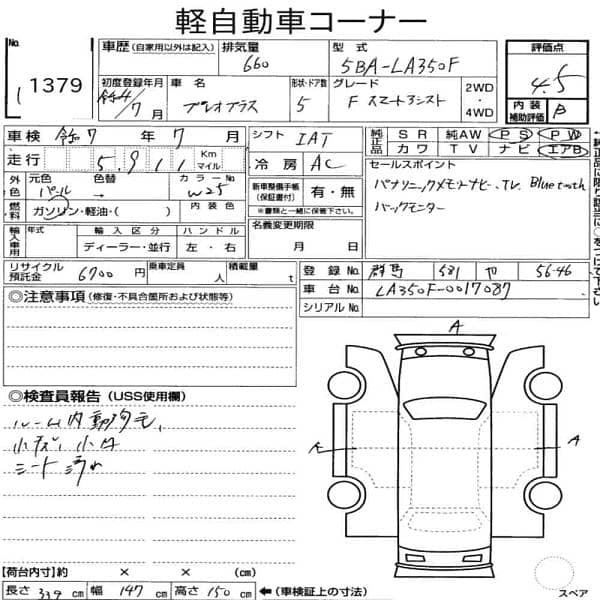 軽自動車コーナー
No. 1379
車歴 (自家用以外は記入) 排気量 660 型式 5BA-LA350F 評価点 4.5
初度登録年月 令4/7月 車名 プレオプラス 形状・ドア数 5 グレード F スマートアシスト 2WD・4WD 内装補助評価 B
車検 令7年7月 シフト IAT 純正品 SR 純AW PS PW
カワ TV ナビ エアB
走行 5,911 Km マイル 冷房 AC セールスポイント
外色 元色 パール 色替 → カラーNo. W25 新車整備手帳(保証書付) 有・無 パナソニックメモリーナビ、TV, Bluetooth
燃料 ガソリン・軽油・( ) 内装色 *書類と一緒に保管下さい。 バックモニター
輸入車用 年式 輸入区分 ハンドル 名義変更期限
ディーラー・並行 左・右 月 日
リサイクル預託金 6700円 乗車定員 人 積載量 t 登録No. 群馬 581 56-46
車台No. LA350F-0017087
シリアルNo.
◎注意事項 (修復・不具合箇所および状態等)
A
◎検査員報告 (USS使用欄)
ルーム内動物毛、
小キズ、小凹
シート汚れ
A
【荷台内寸】約 × × (cm)
長さ 339 cm 幅 147 cm 高さ 150 cm ←(車検証上の寸法)
スペア